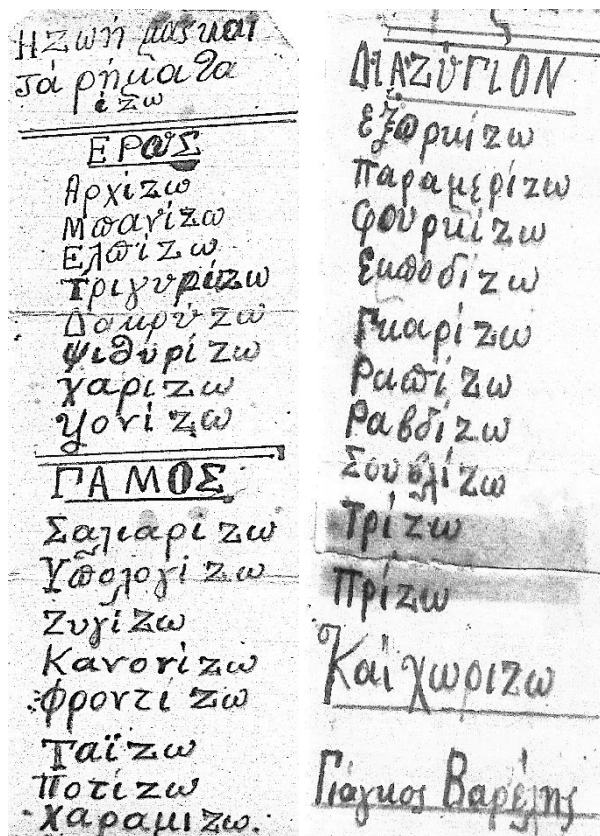 Η Ζωή μας και
τά ρήματα
ίζω
ΕΡΩΣ
Αρχίζω
Μπανίζω
Ελπίζω
Τριγυρίζω
Δακρύζω
Ψιθυρίζω
χαρίζω
γονίζω
ΓΑΜΟΣ
Σαλιαρίζω
Υπολογίζω
Ζυγίζω
Κανονίζω
Φροντίζω
Ταΐζω
Ποτίζω
Χαραμιζω.
ΔΙΑΖΎΓΙΟΝ
εξορκίζω
Παραμερίζω
Φουρκίζω
Εκποδίζω
Γκαρίζω
Ραπίζω
Ραβδίζω
Σουβλίζω
Τρίζω
Πρίζω
Και χωριζω
Γιάγκος Βαρέλης